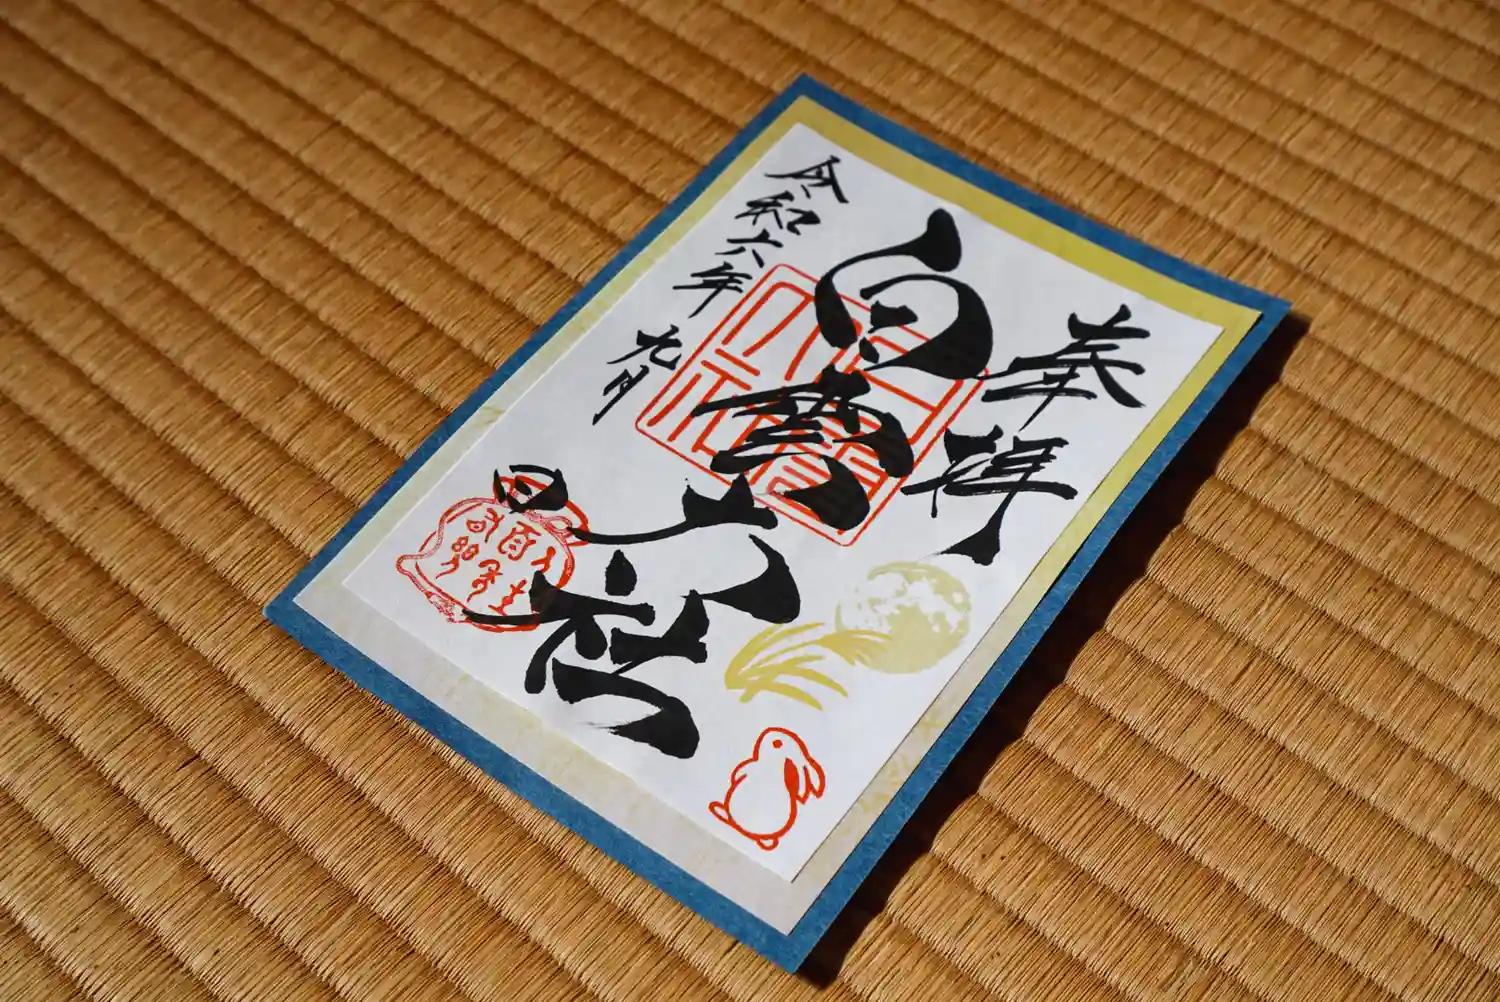 奉拝
白雲六社
令和六年 九月 日